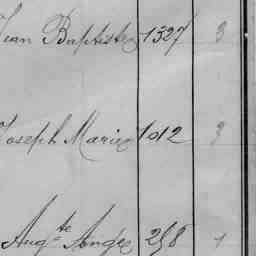 Jean Baptiste 1327 3
Joseph Marie 1012 3
Aug.te Ange 258 1